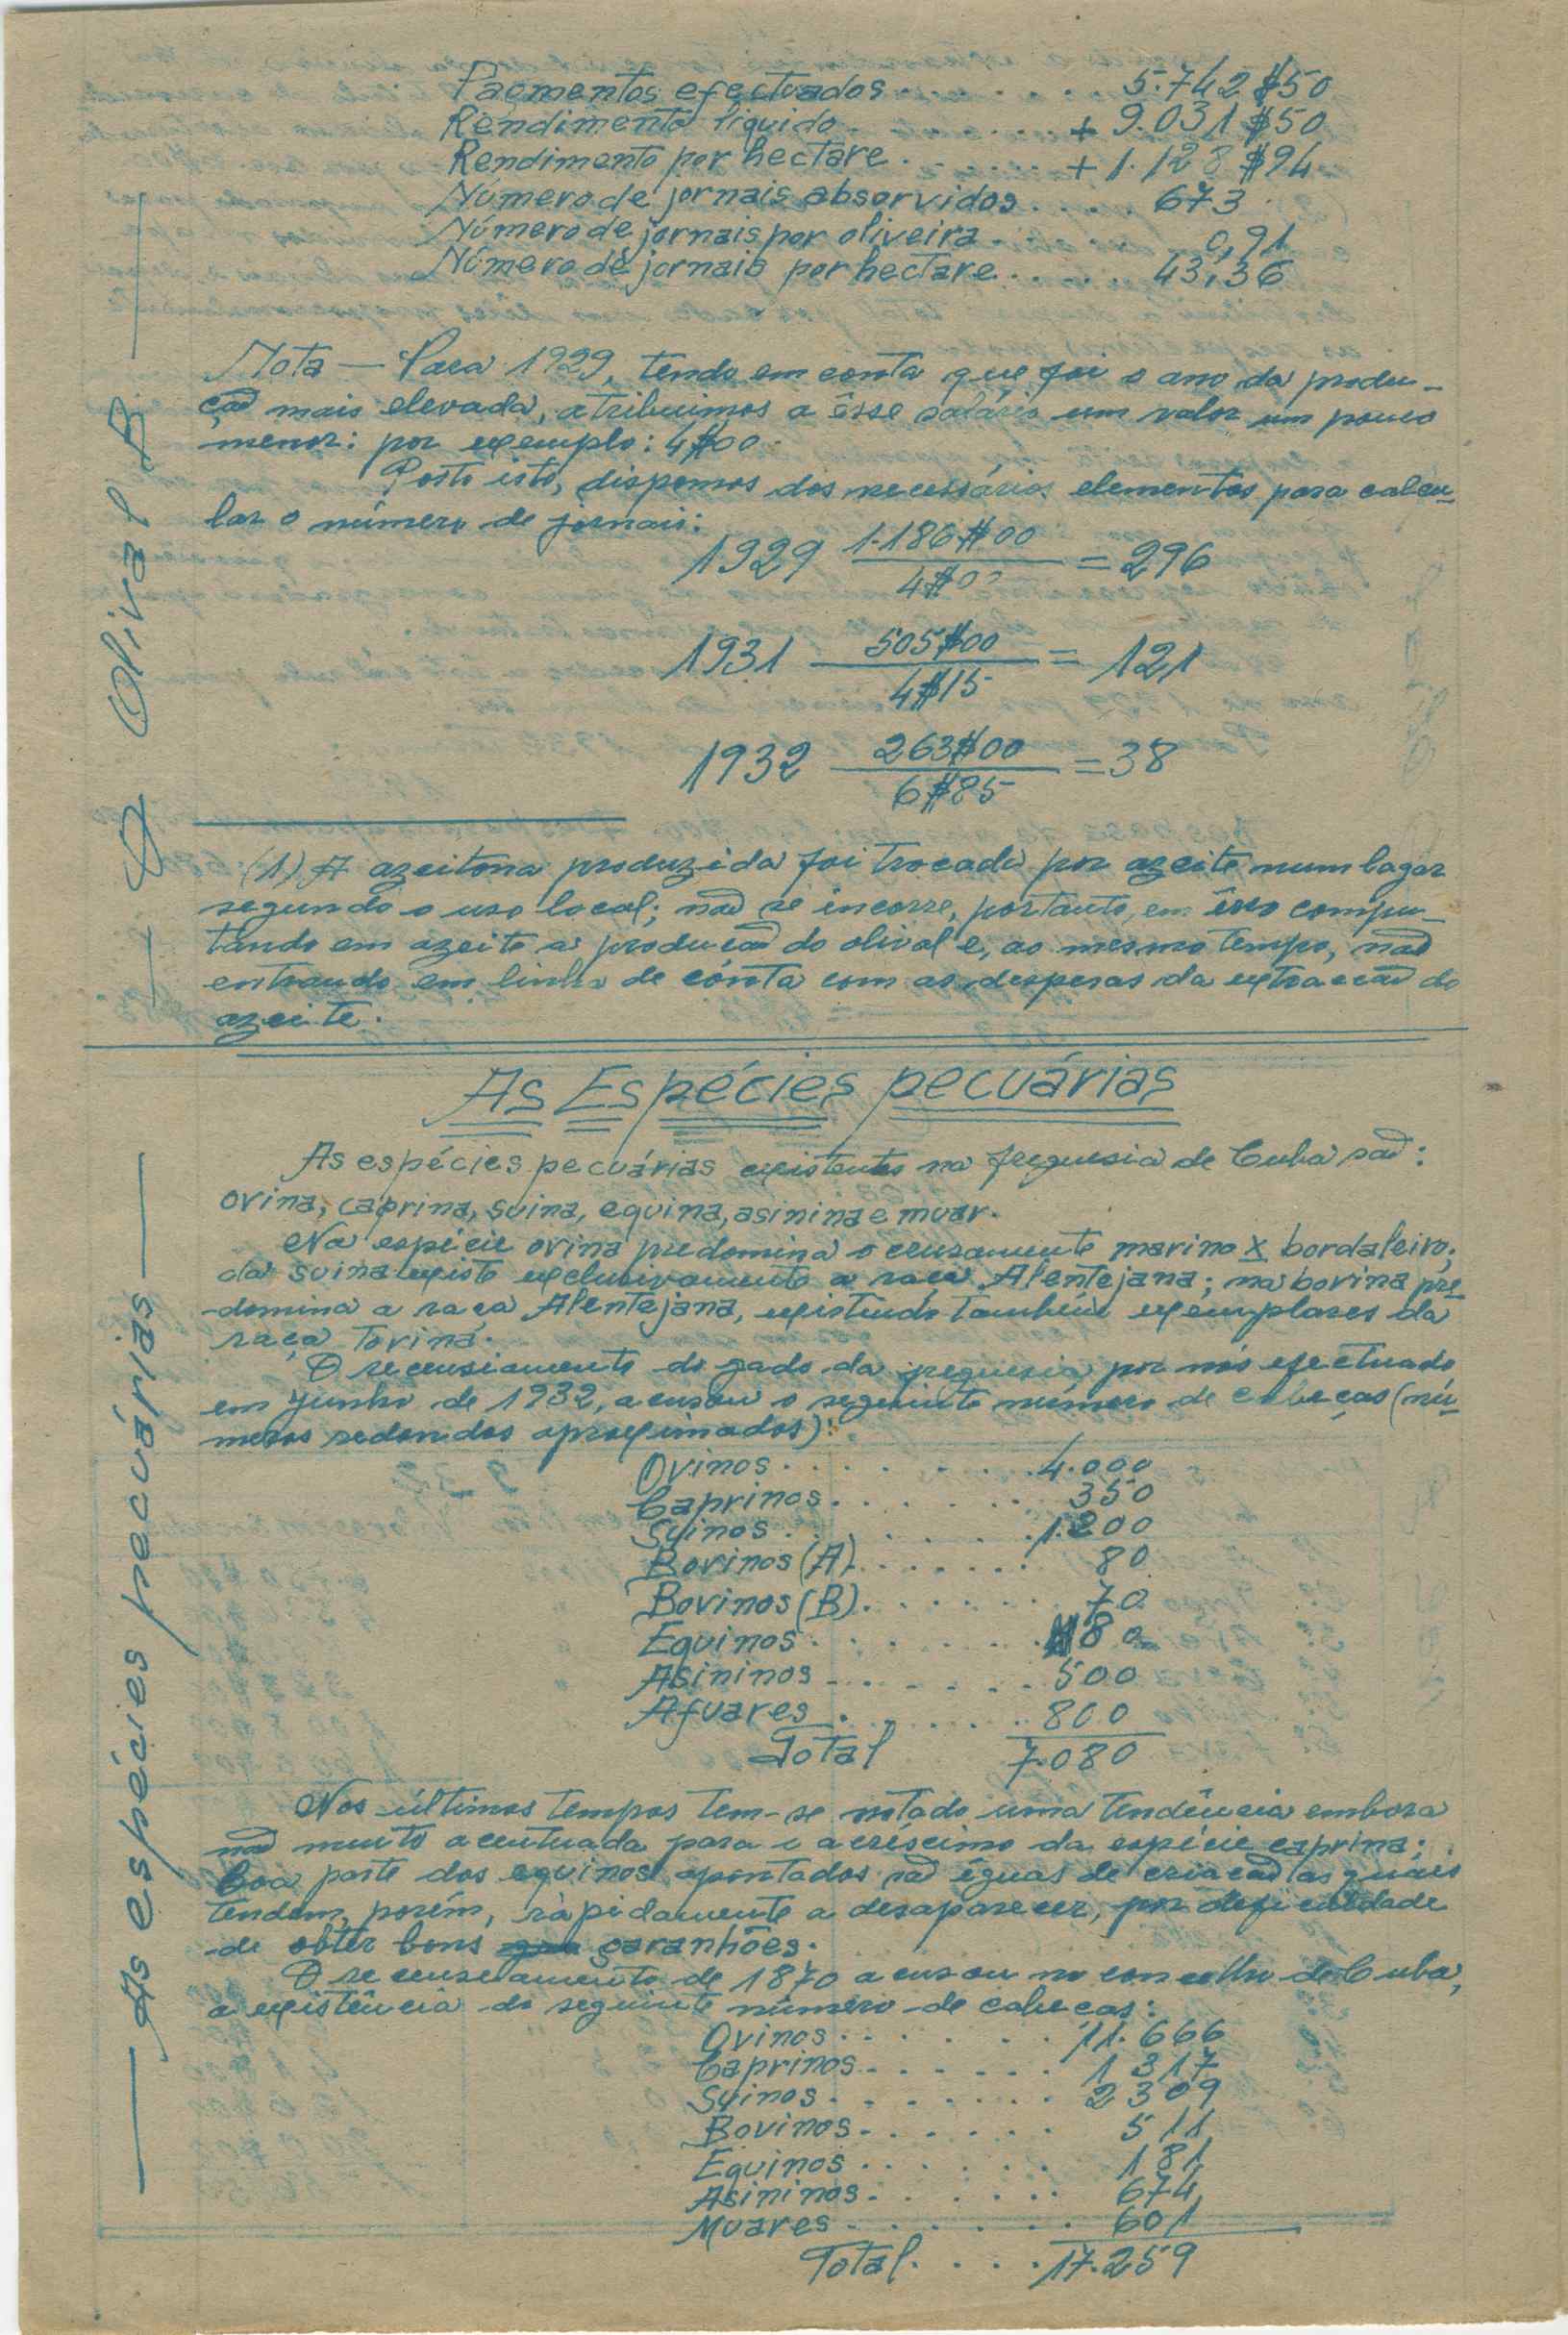 Pagmentos efectuados . . . . . . 5.742$50
Rendimento liquido . . . . . . + 9.031$50
Rendimento por hectare . . . . . + 1.128$94
Número de jornais absorvidos . . . . 673
Número de jornais por oliveira . . . . 0,91
Número de jornais por hectare . . . . . 43,36
— O Olival B —
Nota — Para 1929, tendo em conta que foi o ano da produ-
ção mais elevada, atribuimos a êsse salário um valor um pouco
menor: por exemplo: 4$00.
Posto isto, dispomos dos necessários elementos para calcu-
lar o número de jornais:
1929 1.186$00 / 4$00 = 296
1931 505$00 / 4$15 = 121
1932 263$00 / 6$85 = 38
(1) A azeitona produzida foi trocada por azeite num lagar
segundo o uso local; não se incorre, portanto, em êrro compu-
tando em azeite a produção do olival e, ao mesmo tempo, não
entrando em linha de conta com as despesas da extracção do
azeite.
As Espécies pecuárias
— As espécies pecuárias —
As espécies pecuárias existentes na freguesia de Cuba são:
ovina, caprina, suina, equina, asinina e muar.
Na espécie ovina predomina o cruzamento marino X bordaleiro;
da suina existe exclusivamente a raça Alentejana; na bovina pre-
domina a raça Alentejana, existindo também exemplares da
raça Torina.
O recenseamento do gado da freguesia por nós efectuado
em Junho de 1932, acusou o seguinte número de cabeças (nú-
meros redondos aproximados):
Ovinos . . . . . . . . 4.000
Caprinos . . . . . . 350
Suinos . . . . . . . . 1.200
Bovinos (A) . . . . . . 80
Bovinos (B) . . . . . . 70
Equinos . . . . . . . 80
Asininos . . . . . . . 500
Muares . . . . . . . 800
Total 7.080
Nos últimos tempos tem-se notado uma tendência embora
não muito acentuada para o acréscimo da espécie caprina;
boa parte dos equinos apontados são éguas de criação as quais
tendem, porém, ràpidamente a desaparecer, por dificuldade
de obter bons garanhões.
O recenseamento de 1870 acusou no concelho de Cuba,
a existência do seguinte número de cabeças:
Ovinos . . . . . . . 11.666
Caprinos . . . . . . 1 317
Suinos . . . . . . . 2 309
Bovinos . . . . . . 511
Equinos . . . . . . 181
Asininos . . . . . . 674
Muares . . . . . . . 601
Total . . . . 17.259